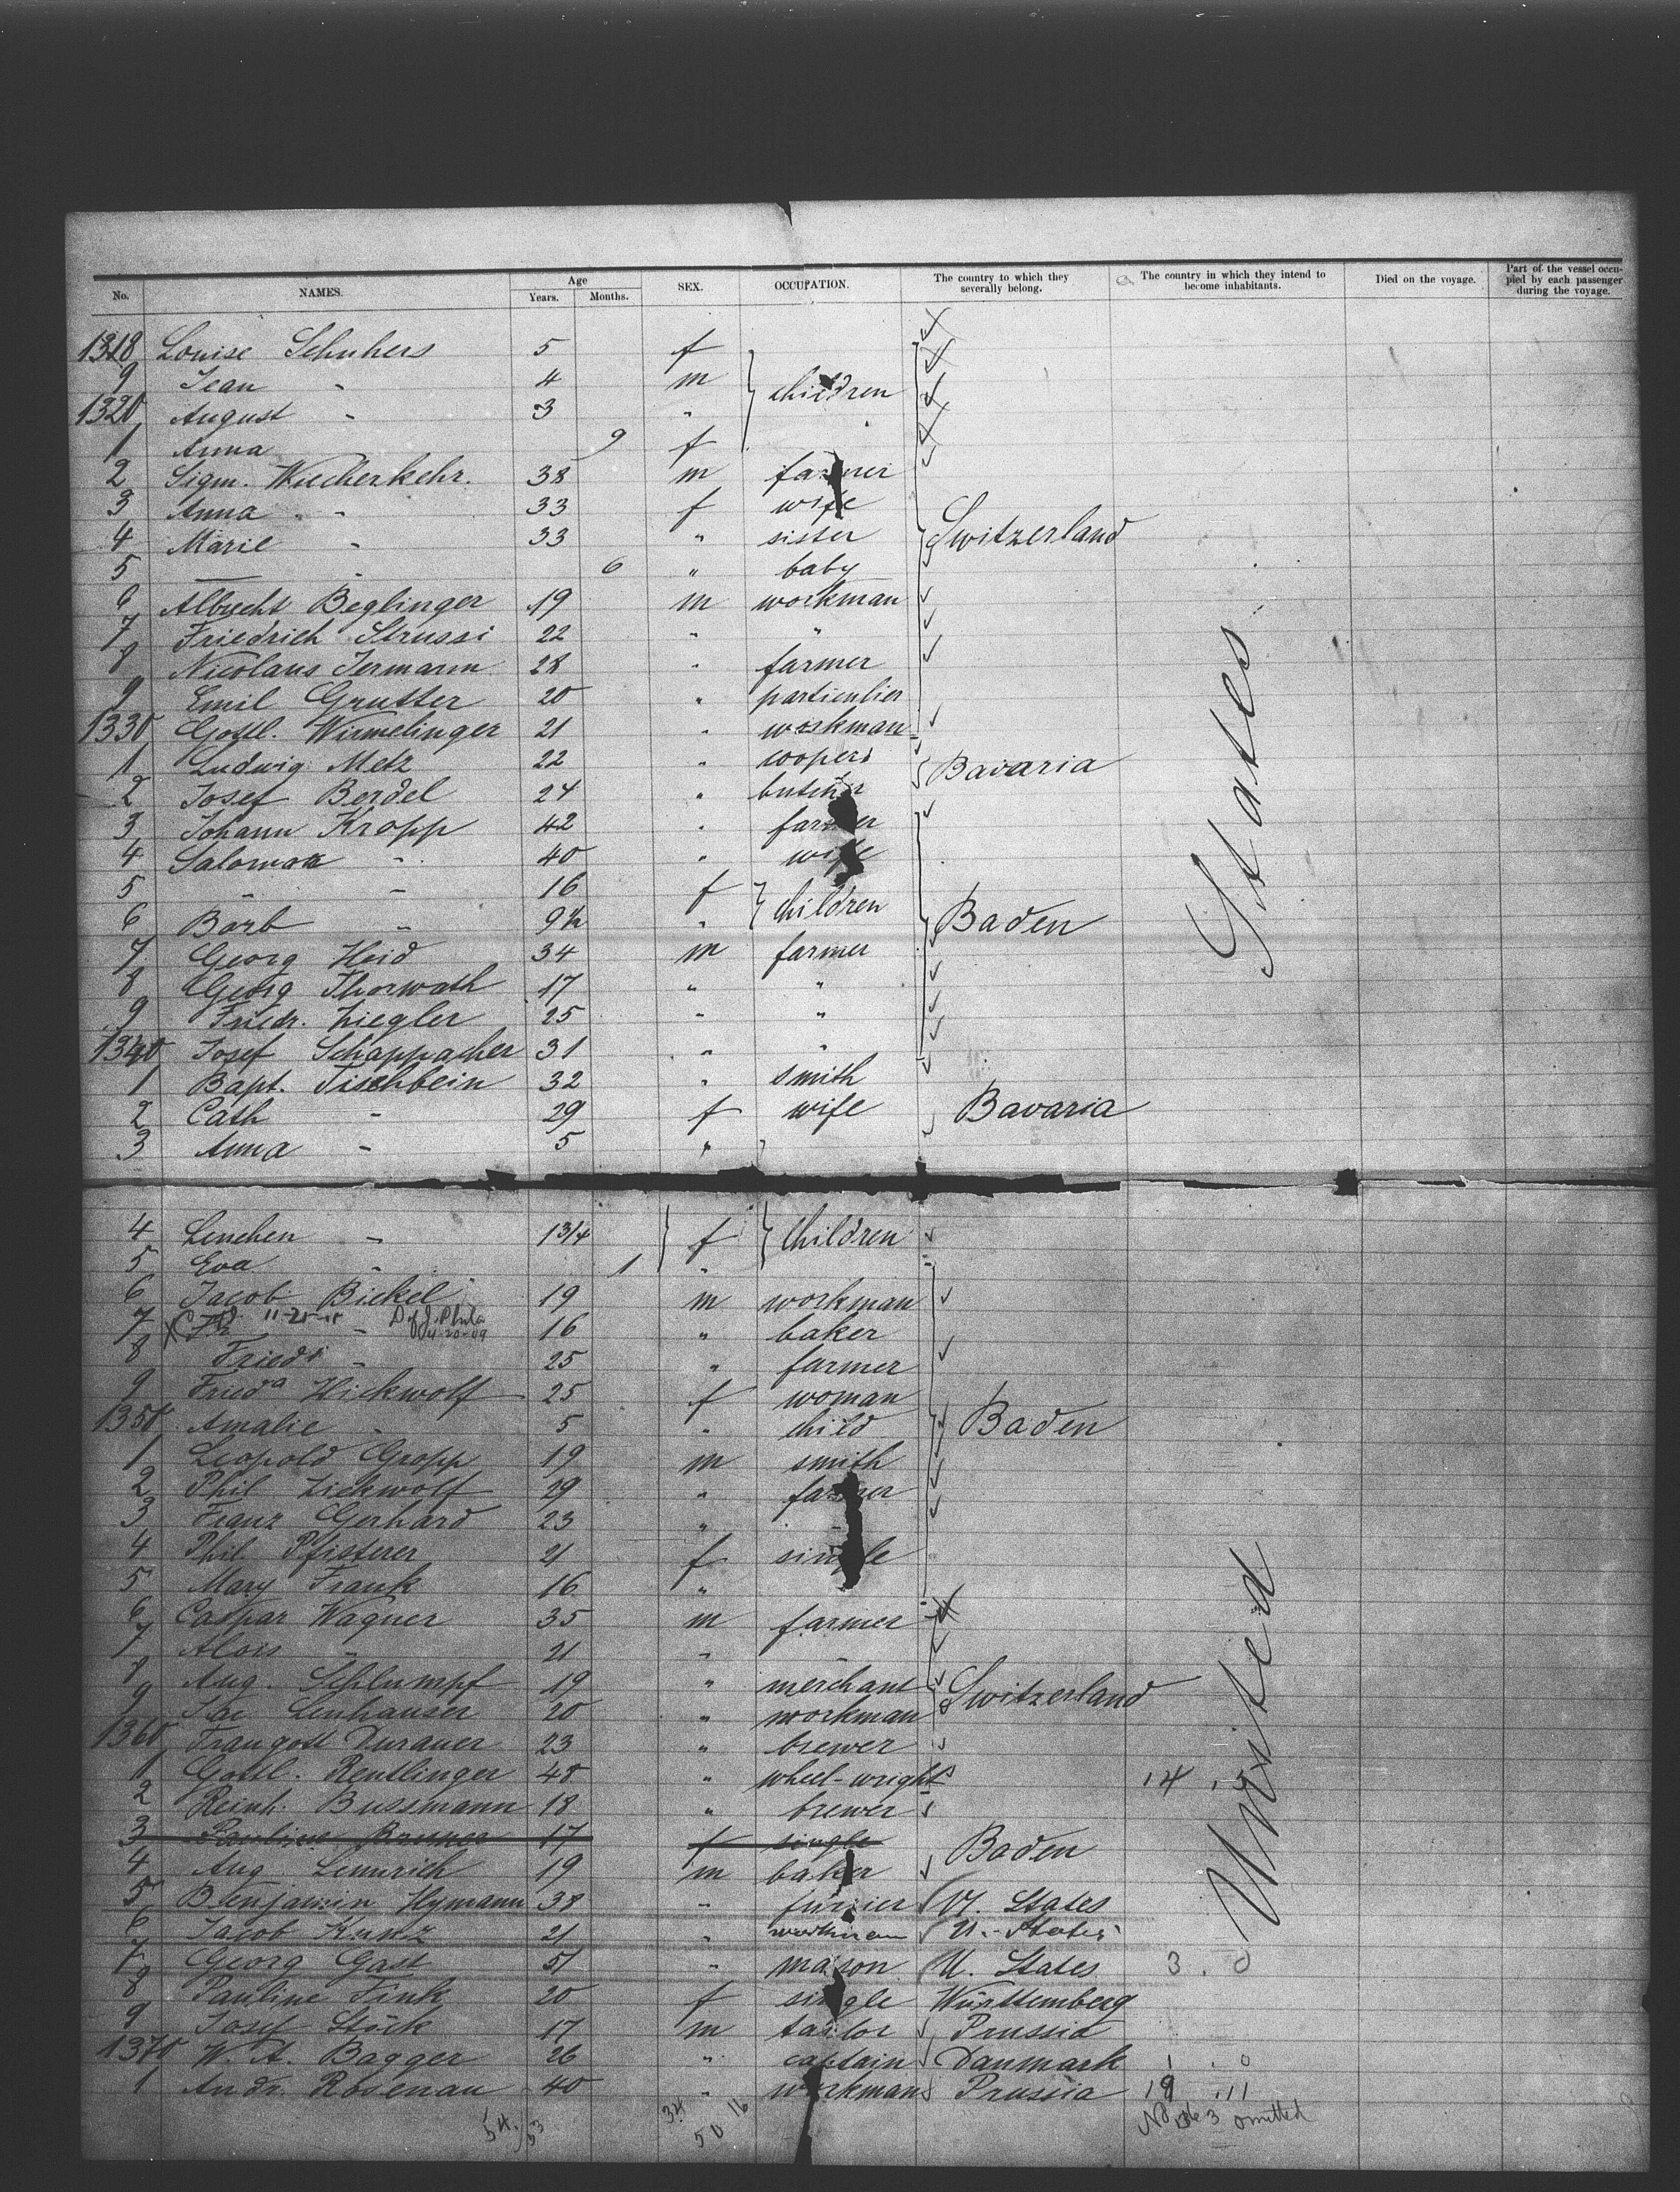 No. NAMES. Age Years. Months. SEX. OCCUPATION. The country to which they severally belong. The country in which they intend to become inhabitants. Died on the voyage. Part of the vessel occupied by each passenger during the voyage.
1318 Louise Schuhers 5 f
9 Jean " 4 m children
1320 August " 3 "
1 Anna 9 f
2 Sigm. Wiederkehr. 38 m farmer
3 Anna " 33 f wife
4 Marie " 33 " sister Switzerland
5 — " 6 " baby
6 Albrecht Beglinger 19 m workman
7 Friedrich Strussi 22 " "
8 Nicolaus Jermann 28 " farmer
9 Emil Grutter 20 " particulier
1330 Gottl. Wirmelinger 21 " workman
1 Ludwig Metz 22 " cooper Bavaria
2 Josef Berdel 24 " butcher
3 Johann Kropp 42 " farmer
4 Salomon " 40 " wife
5 " " 16 f children
6 Barb " 9½ " Baden
7 Georg Heid 34 m farmer
8 Georg Thorwath 17 " "
9 Friedr. Ziegler 25 " "
1340 Josef Schappacher 31 " "
1 Bapt. Tischbein 32 " smith
2 Cath " 29 f wife Bavaria
3 Anna " 5 "
4 Lenchen " 1 3/4 f children
5 Eva " 1 "
6 Jacob Bickel 19 m workman
7 X 11-25-15 " 4-20-09 16 " baker
8 Friedr " 25 " farmer
9 Frieda Hickwolf 25 f woman
1350 Amalie " 5 " child Baden
1 Leopold Gropp 19 m smith
2 Phil Zickwolf 29 " farmer
3 Franz Gerhard 23 " "
4 Phil Pfisterer 21 f single
5 Mary Frank 16 "
6 Caspar Wagner 35 m farmer
7 Alois " 21 " "
8 Aug. Schlumpf 19 " merchant Switzerland
9 Jac Lenhauser 20 " workman
1360 Traugott Durauer 23 " brewer
1 Gottl. Reutlinger 48 " wheel-wright 14
2 Reinh. Bussmann 18 " brewer
3 Pauline Bruner 17 f single Baden
4 Aug Limmrich 19 m baker
5 Benjamin Hymann 38 " furrier U. States
6 Jacob Kunz 21 " workman U. States
7 Georg Gast 51 " mason U. States 3 . 0
8 Pauline Fink 20 f single Württemberg
9 Josef Stöck 17 m tailor Prussia
1370 W. A. Bagger 26 " captain Danmark 1 . 0
1 Andr. Rosenau 40 " workman Prussia 19 . 11
United States
54/53 34 50 16 omitted